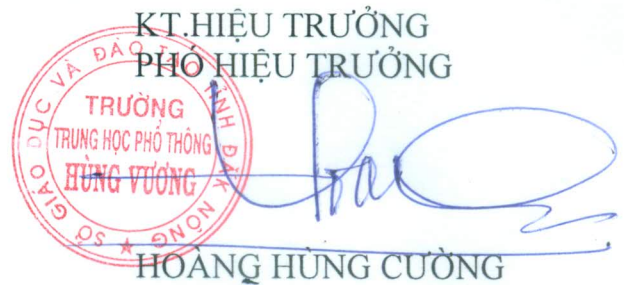 KT.HIỆU TRƯỞNG
PHÓ HIỆU TRƯỞNG
SỞ GIÁO DỤC VÀ ĐÀO TẠO TỈNH ĐĂK NÔNG
TRƯỜNG
TRUNG HỌC PHỔ THÔNG
HÙNG VƯƠNG
HOÀNG HÙNG CƯỜNG